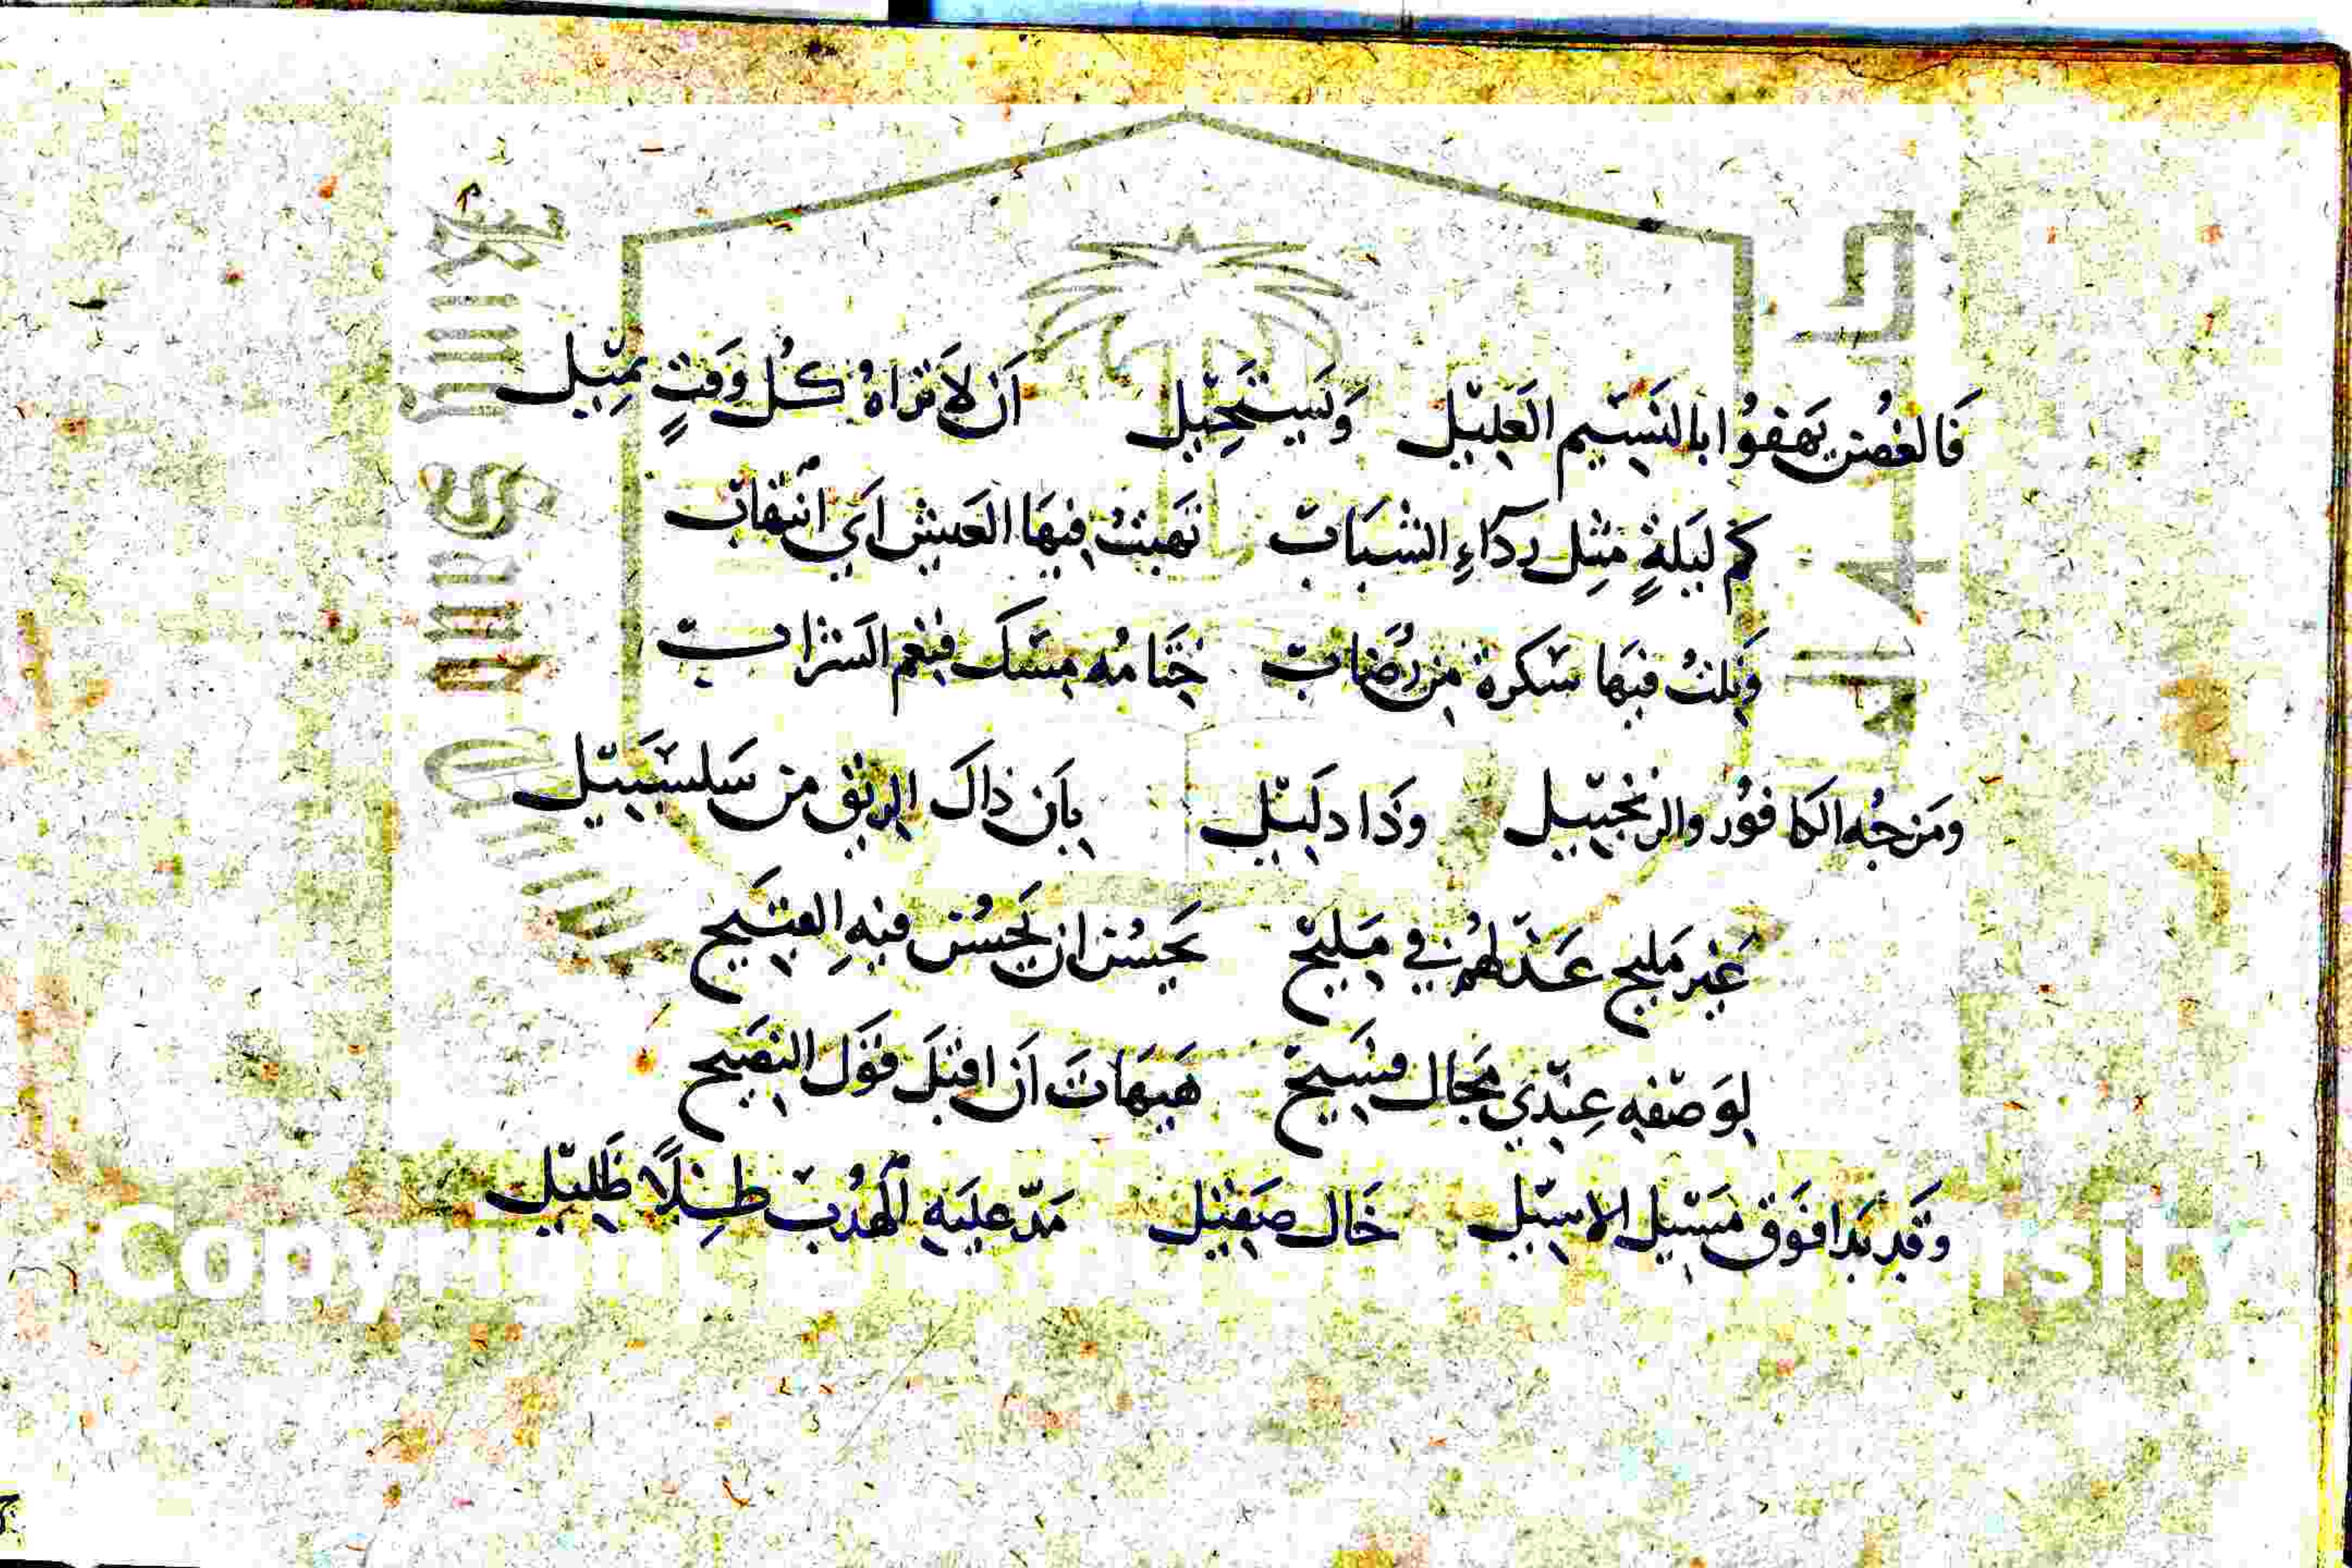 فَالغُصن يَهفُوا بالنَسيم العَليل وَيَستَحيل اَن لاَ تَراهُ كُل وَقتٍ يميل
كم لَيلةٍ مثل ردَاءِ الشبَاب نَهبتُ فيهَا العَيش اَي انتهاب
وَنلتُ فيهَا سَكرة من رُضاب ختَامُه مسك فنعم الشراب
ومَزجُه الكافوُر والزنجبيل وذا دليل بأن ذاكَ الريق من سَلسَبيل
غَير مَليح عَذلهُم في مَليح يَحسُن ان يَحسُن فيهِ القبيح
لوَصفه عِندي مَجال فسَيح هَيهَات اَن اقبَل قَوَل النصَيح
وَقَد بَدا فَوق مَسَيل الاسيل خَال صَقيل مَدّ عليَه الهُدب ظِلاً ظَليل
Copyright © King Saud University